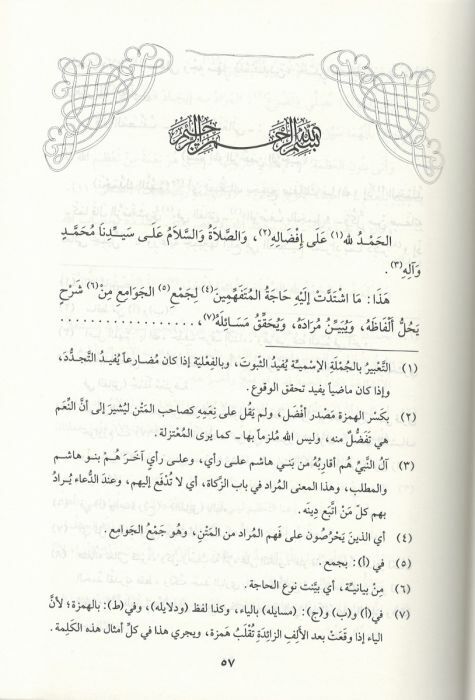 بسم الله الرحمن الرحيم
الحَمْـدُ لله(١) عَلَى إِفْضَالِهِ(٢)، وَالصَّلاَةُ وَالسَّلاَمُ عَلَـى سَيِّـدِنَا مُحَمَّـدٍ
وَآلِهِ(٣).
هَذَا: مَا اشْتَدَّتْ إِلَيْهِ حَاجَةُ المُتَفَهِّمِينَ(٤) لِجَمْعِ(٥) الجَوَامِعِ مِنْ(٦) شَرْحٍ
يَحُلُّ أَلْفَاظَهُ، وَيُبَيِّـنُ مُرَادَهُ، وَيُحَقِّقُ مَسَـائِلَهُ(٧)، . . . . . . . . . . . . . . . .
(١) التَّعْبِيرُ بالجُمْلَةِ الإِسْمِيَّـةِ يُفيدُ الثبوتَ، وبالفِعْليَّة إذا كان مُضارعاً يُفيـدُ التجدُّدَ،
وإذا كان ماضياً يفيد تحقق الوقوع.
(٢) بكَسْرِ الهمزة مَصْدر أفضَل، ولم يَقُل على نِعَمِهِ كصاحب المَتْن ليُشيرَ إلى أنَّ النِّعَم
هي تَفَضُّلٌ منه، وليس الله مُلزماً بها ـ كما يرى المُعْتزلة.
(٣) آلُ النَّبيِّ هُم أقاربُهُ من بَنـي هاشم علـى رأي، وعلـى رأي آخَـرَ هُـمْ بنـو هاشم
والمطلب، وهذا المعنى المُراد في باب الزَّكاة، أي لا تُدْفَع إليهم، وعندَ الدُّعاء يُـرادُ
بهم كلّ مَنْ اتَّبَع دِينَه.
(٤) أي الذينَ يَحْرُصُون على فَهم المُراد من المَتْنِ، وهُو جَمْعُ الجَوامِع.
(٥) في (أ): بجمع.
(٦) مِنْ بيانِيَّة، أي بيَّنت نوعَ الحاجة.
(٧) في(أ) و(ب) و(ج): (مسايله) بالياء، وكذا لفظ (ودلايله)، وفي(ط): بالهمزة؛ لأنَّ
الياء إذا وقعَتْ بعد الألِفِ الزَّائِدةِ تُقْلَبُ هَمزة، ويجري هذا في كلِّ أمثال هذه الكَلِمة.
٥٧